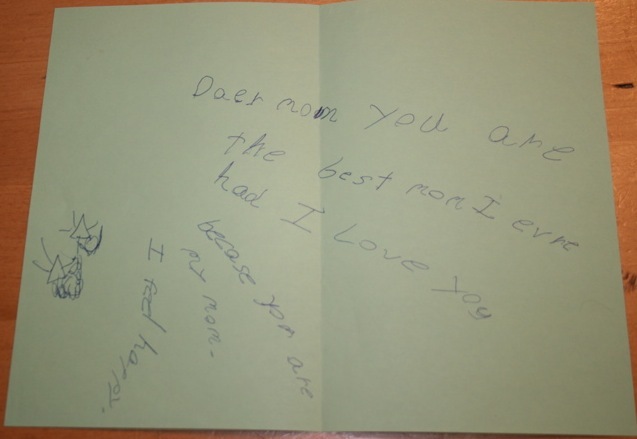 Daer mom you are
the best mom I evre
had I Love yoy
becase you are
my mom.
I feel happy.